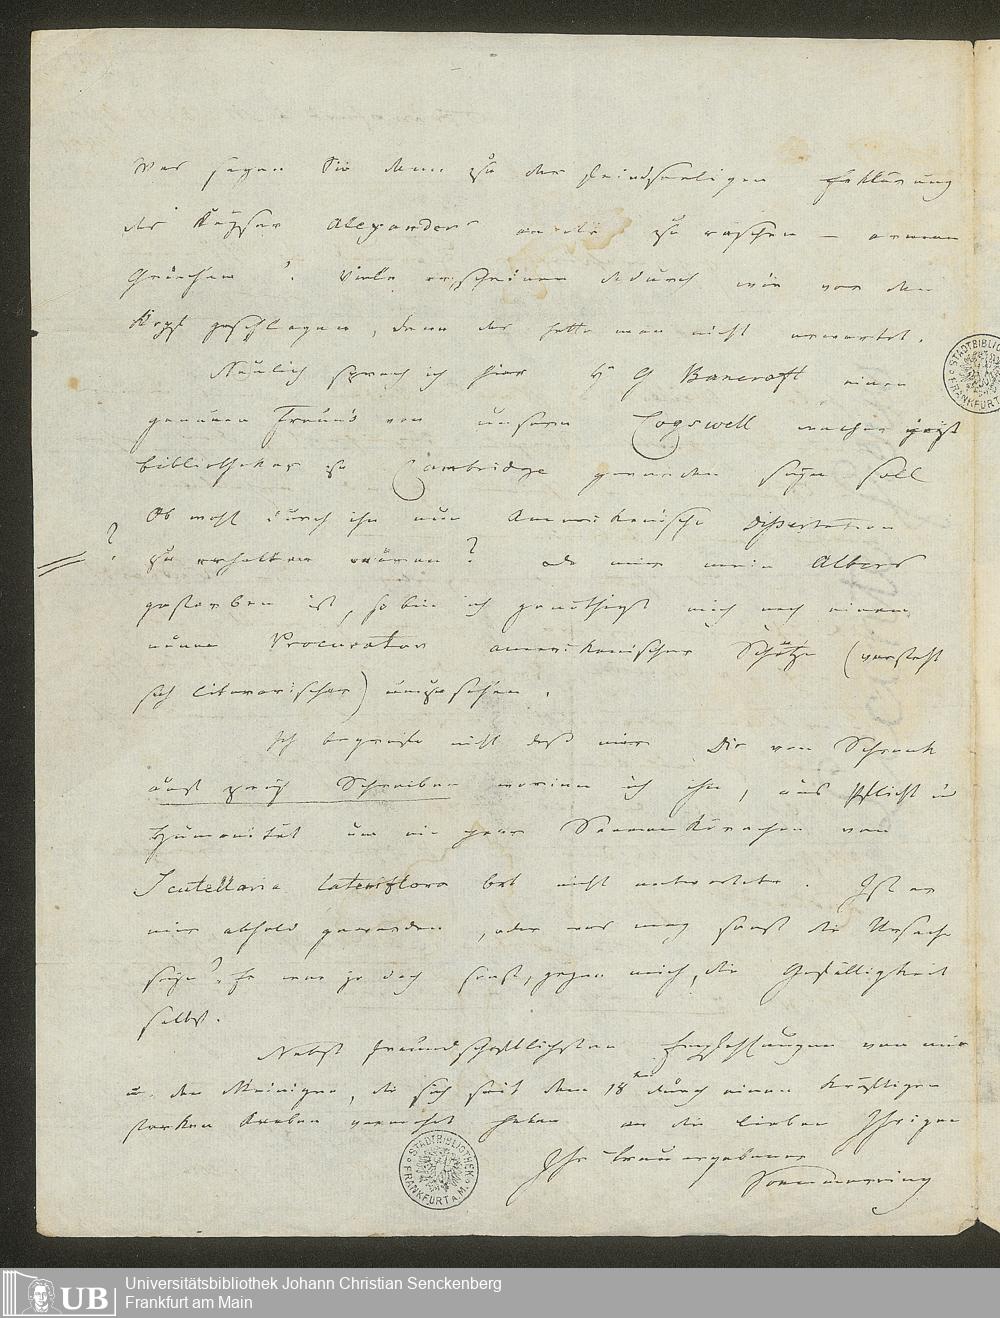 Was sagen Sie denn zu der feindseeligen Erklärung
des Kayser Alexanders an die zu raschen — armen
Griechen? Viele erscheinen dadurch wie vor den
Kopf geschlagen, denn das hatte man nicht erwartet.
Neulich sprach ich hier Hr G Bancroft einen
genauen Freund von unserm Cogswell welcher jezt
Bibliothekar zu Cambridge geworden seyn soll
Ob wohl durch ihn nun Amerikanische Dissertation
zu erhalten wären? da mir mein Albers
gestorben ist, so bin ich genöthigt mich nach einem
neuen Procurator amerikanischer Schätze (versteht
sich literarischer) umzusehen.
Ich begreife nicht daß mir Dir von Schrank
auf Schreiben worinn ich ihn, aus Pflicht u
Humanität um ein paar Saamen Körnchen von
Scutellaria lateriflora bat nicht antwortete. Ist er
mir abhold geworden, oder was mag sonst die Ursache
seyn? Er war ja doch sonst, gegen mich, die Gefälligkeit
selbst.
Nebst freundschaftlichsten Empfehlungen von mir
u. den Meinigen, die sich seit dem 18 durch einen kräftigen
starken Knaben vermehrt haben an die lieben Ihrigen
Ihr treu ergebener
Soemmerring
STADTBIBLIOTHEK
FRANKFURT A. M.
UB
Universitätsbibliothek Johann Christian Senckenberg
Frankfurt am Main